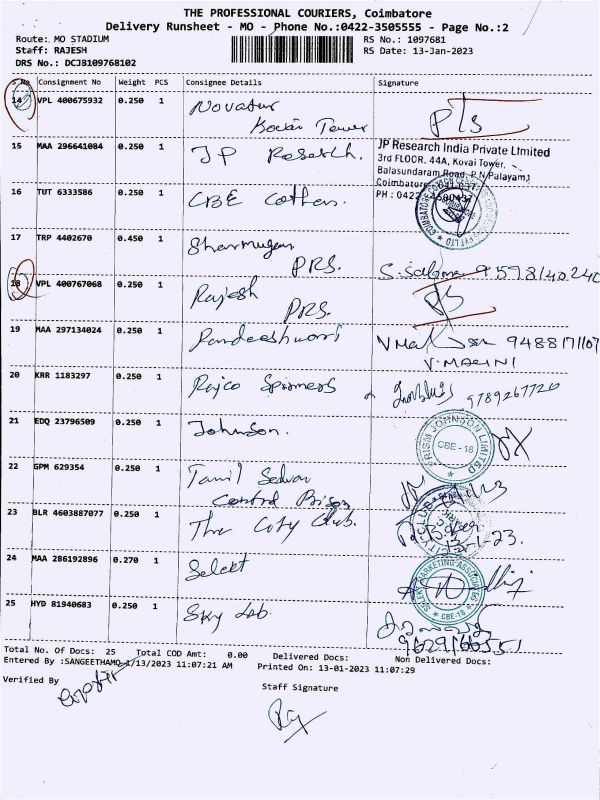 THE PROFESSIONAL COURIERS, Coimbatore
Delivery Runsheet - MO - Phone No.:0422-3505555 - Page No.:2
Route: MO STADIUM
RS No.: 1097681
Staff: RAJESH
RS Date: 13-Jan-2023
DRS No.: DCJB109768102
S No Consignment No Weight PCS Consignee Details Signature
14 VPL 400675932 0.250 1 Novatur
Kovai Tower
15 MAA 296641084 0.250 1 JP Research.
JP Research India Private Limited
3rd FLOOR, 44A, Kovai Tower,
Balasundaram Road, P.N Palayam,
Coimbatore
PH : 0422
16 TUT 6333586 0.250 1 CBE Cotton.
17 TRP 4402670 0.450 1 Shanmugam
PRS.
18 VPL 400767068 0.250 1 Rajesh
PRS.
19 MAA 297134024 0.250 1 Pandeeshwari
V. MALINI
20 KRR 1183297 0.250 1 Rajco Spinners 9789267720
21 EDQ 23796509 0.250 1 Johnson.
JOHNSON LIMITED
CBE - 18
22 GPM 629354 0.250 1 Tamil Selvan
Central Prison
23 BLR 4603887077 0.250 1 The City Club.
13-1-23.
24 MAA 286192896 0.270 1 Select
MARKETING ASSOCIATES
CBE-18
25 HYD 81940683 0.250 1 Sky Lab
Total No. Of Docs: 25 Total COD Amt: 0.00 Delivered Docs: Non Delivered Docs:
Entered By :SANGEETHAMO-1/13/2023 11:07:21 AM Printed On: 13-01-2023 11:07:29
Verified By
Staff Signature